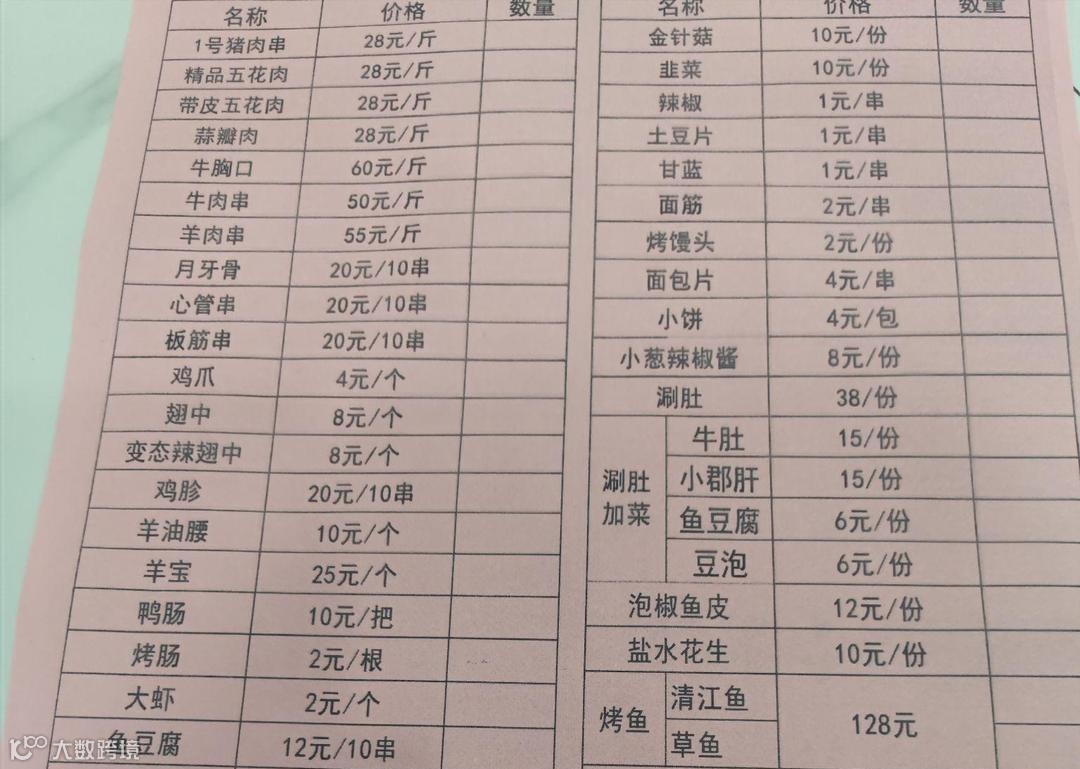 名称 价格 数量
1号猪肉串 28元/斤
精品五花肉 28元/斤
带皮五花肉 28元/斤
蒜瓣肉 28元/斤
牛胸口 60元/斤
牛肉串 50元/斤
羊肉串 55元/斤
月牙骨 20元/10串
心管串 20元/10串
板筋串 20元/10串
鸡爪 4元/个
翅中 8元/个
变态辣翅中 8元/个
鸡胗 20元/10串
羊油腰 10元/个
羊宝 25元/个
鸭肠 10元/把
烤肠 2元/根
大虾 2元/个
鱼豆腐 12元/10串
名称 价格 数量
金针菇 10元/份
韭菜 10元/份
辣椒 1元/串
土豆片 1元/串
甘蓝 1元/串
面筋 2元/串
烤馒头 2元/份
面包片 4元/串
小饼 4元/包
小葱辣椒酱 8元/份
涮肚 38/份
涮肚加菜
牛肚 15/份
小郡肝 15/份
鱼豆腐 6元/份
豆泡 6元/份
泡椒鱼皮 12元/份
盐水花生 10元/份
烤鱼
清江鱼
草鱼
128元
大数跨境